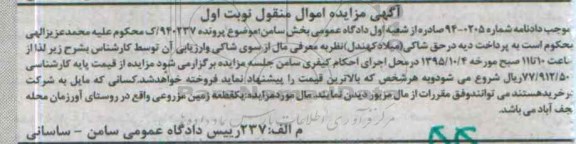 آگهی مزایده اموال منقول نوبت اول
بموجب دادنامه شماره ۰۲۰۵-۹۴ صادره از شعبه اول دادگاه عمومی بخش سامن؛ موضوع پرونده ۹۴۰۲۳۷/ک محکوم علیه محمدعزیزالهی
محکوم است به پرداخت دیه در حق شاکی (میلاد کهندل) نظریه معرفی مال از سوی شاکی وارزیابی آن توسط کارشناس بشرح زیر لذا از
ساعت ۱۰ تا ۱۱ صبح مورخه ۱۳۹۵/۱۰/۴ در محل اجرای احکام کیفری سامن جلسه مزایده برگزار می شود مزایده از قیمت پایه کارشناسی
۷۷/۹۱۲/۵۰ ریال شروع می شود وبه هرشخص که بالاترین قیمت را پیشنهاد نماید فروخته خواهدشد. کسانی که مایل به شرکت
خریدهستند می توانندوفق مقررات از مال مزبور دیدن نمایند. مال مورد مزایده: یکقطعه زمین مزروعی واقع در روستای آورزمان محله
نجف آباد می باشد.
م الف: ۲۳۷ رییس دادگاه عمومی سامن - ساسانی